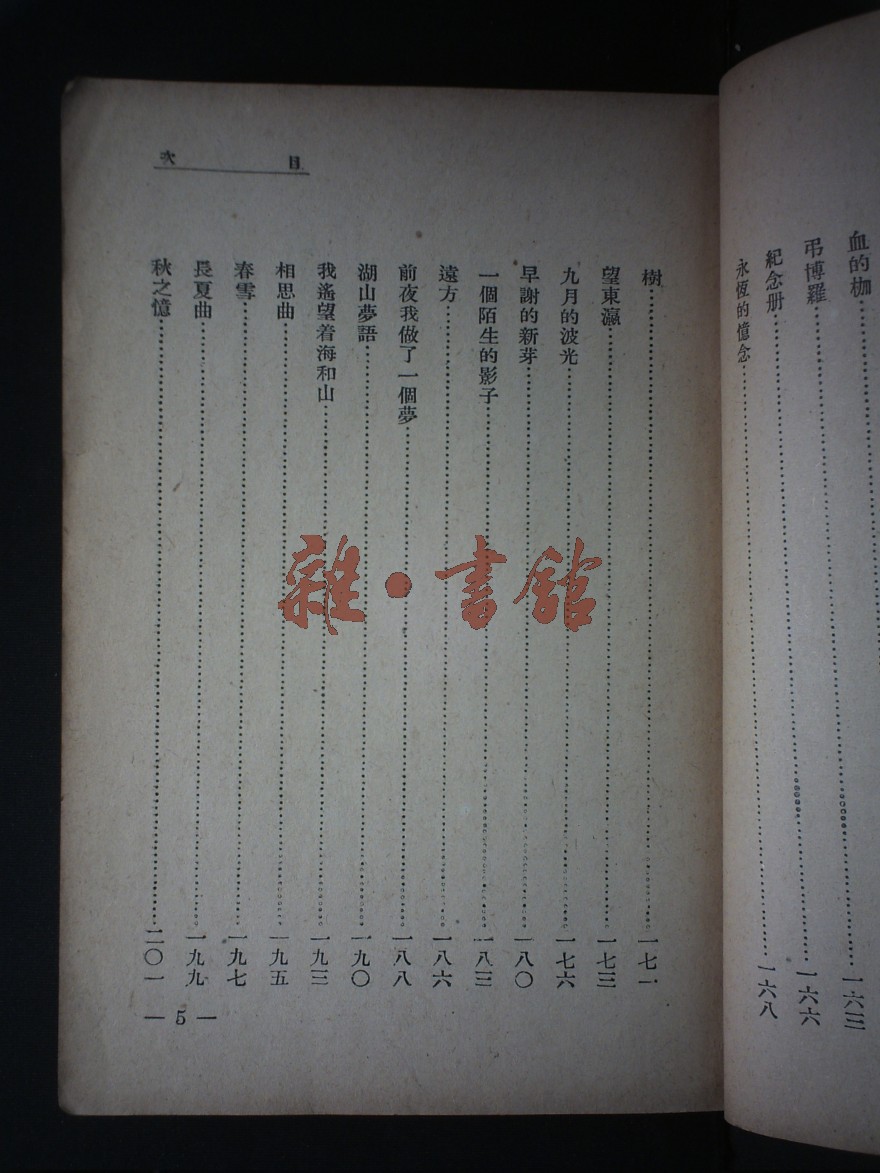 血的枷
弔博羅……一六三
紀念册……一六六
永恆的憶念……一六八
目次
樹……一七一
望東瀛……一七三
九月的波光……一七六
早謝的新芽……一八〇
一個陌生的影子……一八三
遠方……一八六
前夜我做了一個夢……一八八
湖山夢語……一九〇
我遙望着海和山……一九三
相思曲……一九五
春雪……一九七
長夏曲……一九九
秋之憶……二〇一
— 5 —
雜·書館